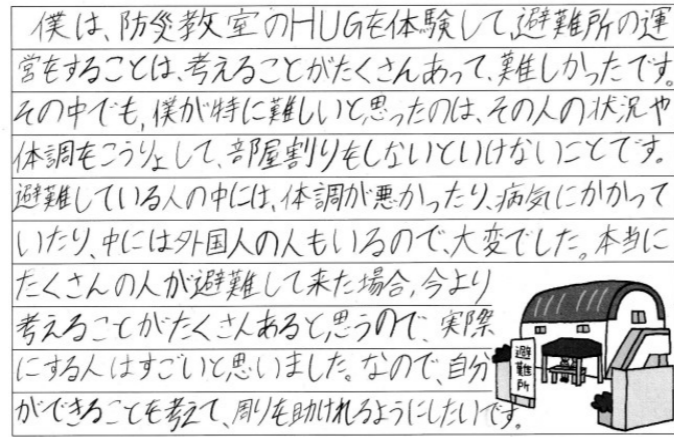 僕は、防災教室のHUGを体験して、避難所の運
営をすることは、考えることがたくさんあって、難しかったです。
その中でも、僕が特に難しいと思ったのは、その人の状況や
体調をこうりょして、部屋割りもしないといけないことです。
避難している人の中には、体調が悪かったり、病気にかかって
いたり、中には外国人の人もいるので、大変でした。本当に
たくさんの人が避難して来た場合、今より
考えることがたくさんあると思うので、実際
にする人はすごいと思いました。なので、自分
ができることを考えて、周りを助けれるようにしたいです。
避難所